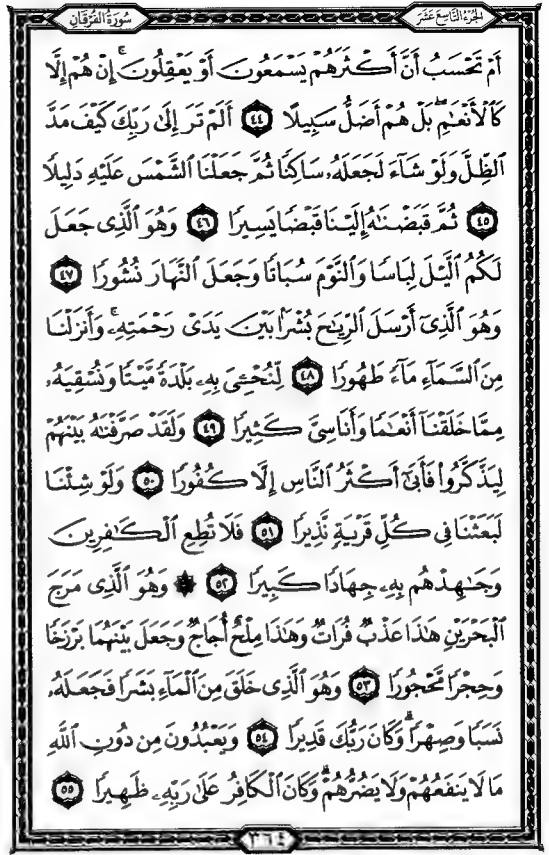 سُورَةُ الفُرْقَانِ
الجُزْءُ التَّاسِعَ عَشَرَ
أَمْ تَحْسَبُ أَنَّ أَكْثَرَهُمْ يَسْمَعُونَ أَوْ يَعْقِلُونَ ۚ إِنْ هُمْ إِلَّا
كَالْأَنْعَٰمِ ۖ بَلْ هُمْ أَضَلُّ سَبِيلًا ٤٤ أَلَمْ تَرَ إِلَىٰ رَبِّكَ كَيْفَ مَدَّ
الظِّلَّ وَلَوْ شَآءَ لَجَعَلَهُۥ سَاكِنًا ثُمَّ جَعَلْنَا الشَّمْسَ عَلَيْهِ دَلِيلًا
٤٥ ثُمَّ قَبَضْنَٰهُ إِلَيْنَا قَبْضًا يَسِيرًا ٤٦ وَهُوَ الَّذِى جَعَلَ
لَكُمُ الَّيْلَ لِبَاسًا وَالنَّوْمَ سُبَاتًا وَجَعَلَ النَّهَارَ نُشُورًا ٤٧
وَهُوَ الَّذِىٓ أَرْسَلَ الرِّيَٰحَ بُشْرًۢا بَيْنَ يَدَىْ رَحْمَتِهِۦ ۚ وَأَنزَلْنَا
مِنَ السَّمَآءِ مَآءً طَهُورًا ٤٨ لِّنُحْـِۧىَ بِهِۦ بَلْدَةً مَّيْتًا وَنُسْقِيَهُۥ
مِمَّا خَلَقْنَآ أَنْعَٰمًا وَأَنَاسِىَّ كَثِيرًا ٤٩ وَلَقَدْ صَرَّفْنَٰهُ بَيْنَهُمْ
لِيَذَّكَّرُوا۟ فَأَبَىٰٓ أَكْثَرُ النَّاسِ إِلَّا كُفُورًا ٥٠ وَلَوْ شِئْنَا
لَبَعَثْنَا فِى كُلِّ قَرْيَةٍ نَّذِيرًا ٥١ فَلَا تُطِعِ الْكَٰفِرِينَ
وَجَٰهِدْهُم بِهِۦ جِهَادًا كَبِيرًا ٥٢ ۞ وَهُوَ الَّذِى مَرَجَ
الْبَحْرَيْنِ هَٰذَا عَذْبٌ فُرَاتٌ وَهَٰذَا مِلْحٌ أُجَاجٌ وَجَعَلَ بَيْنَهُمَا بَرْزَخًا
وَحِجْرًا مَّحْجُورًا ٥٣ وَهُوَ الَّذِى خَلَقَ مِنَ الْمَآءِ بَشَرًا فَجَعَلَهُۥ
نَسَبًا وَصِهْرًا ۗ وَكَانَ رَبُّكَ قَدِيرًا ٥٤ وَيَعْبُدُونَ مِن دُونِ اللَّهِ
مَا لَا يَنفَعُهُمْ وَلَا يَضُرُّهُمْ ۗ وَكَانَ الْكَافِرُ عَلَىٰ رَبِّهِۦ ظَهِيرًا ٥٥
٣٦٤